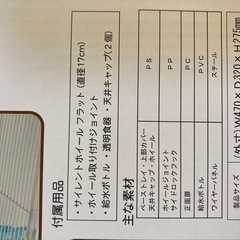 付属用品
・サイレントホイールフラット(直径17cm)
・ホイール取り付けジョイント
・給水ボトル・透明食器・天井キャップ(2個)
主な素材
ベーストレイ・上部カバー PS
天井キャップ・ホイール
ホイールジョイント PP
サイドロックフック
正面扉 PC
給水ボトル PVC
ワイヤーパネル スチール
製品サイズ (外寸)W470×D320×H275mm